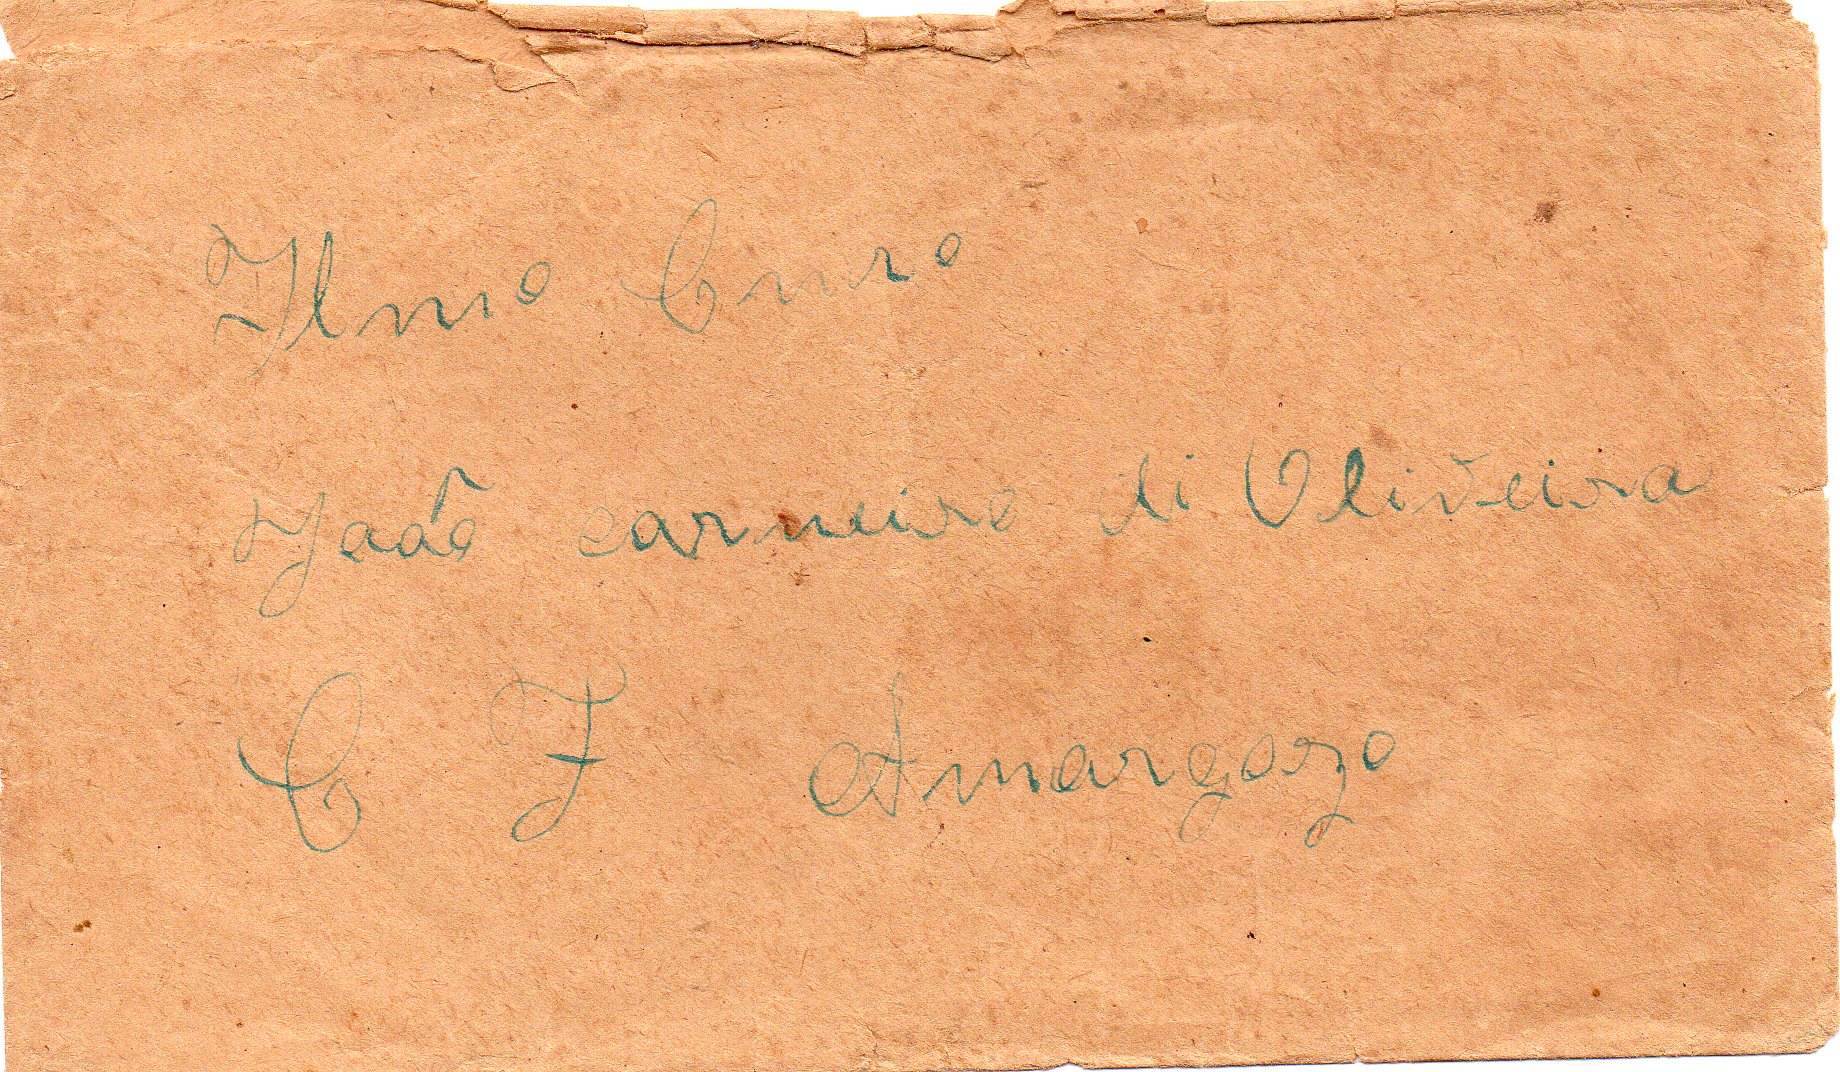 Ilmo Cnro
Joaõ carneiro di Oliveira
C F Amargozo